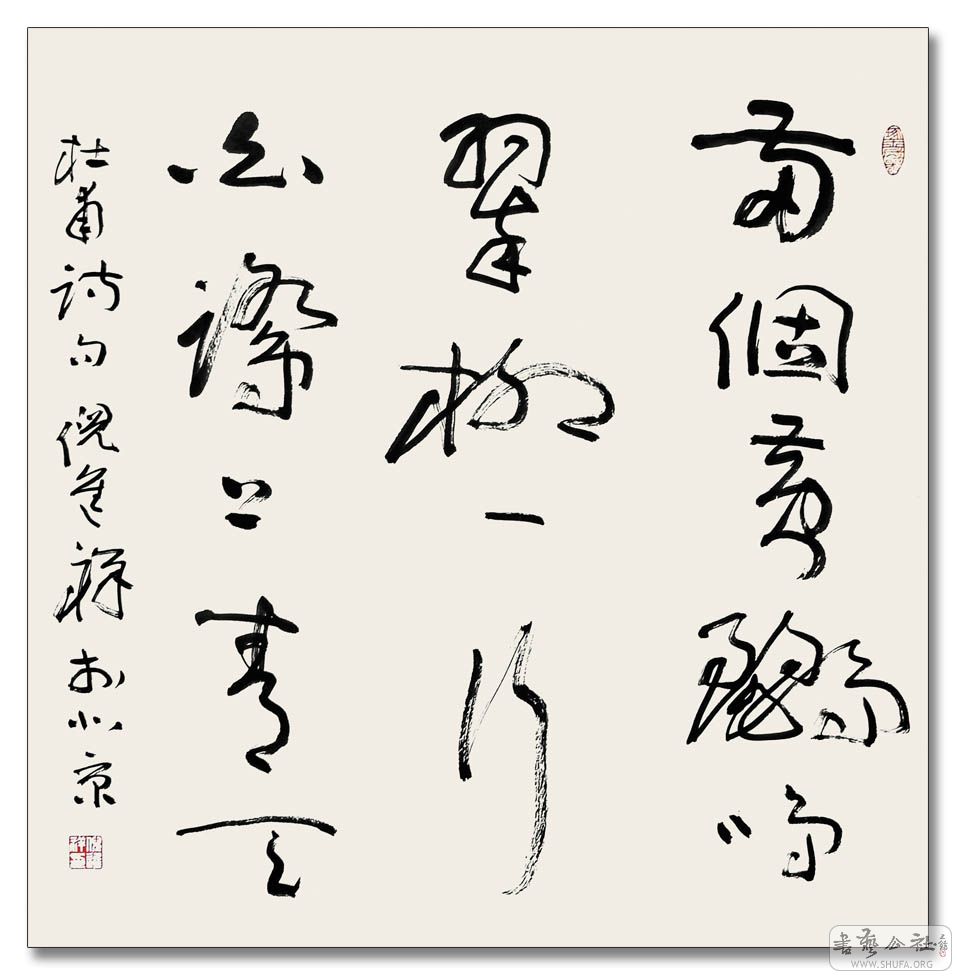 兩個黃鸝鳴
翠柳一行
白鷺上青天
杜甫詩句 倪進祥於北京
書藝公社
WWW.SHUFA.ORG